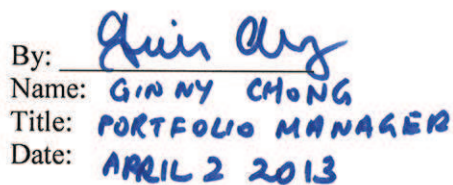 By:
Name: GINNY CHONG
Title: PORTFOLIO MANAGER
Date: APRIL 2 2013